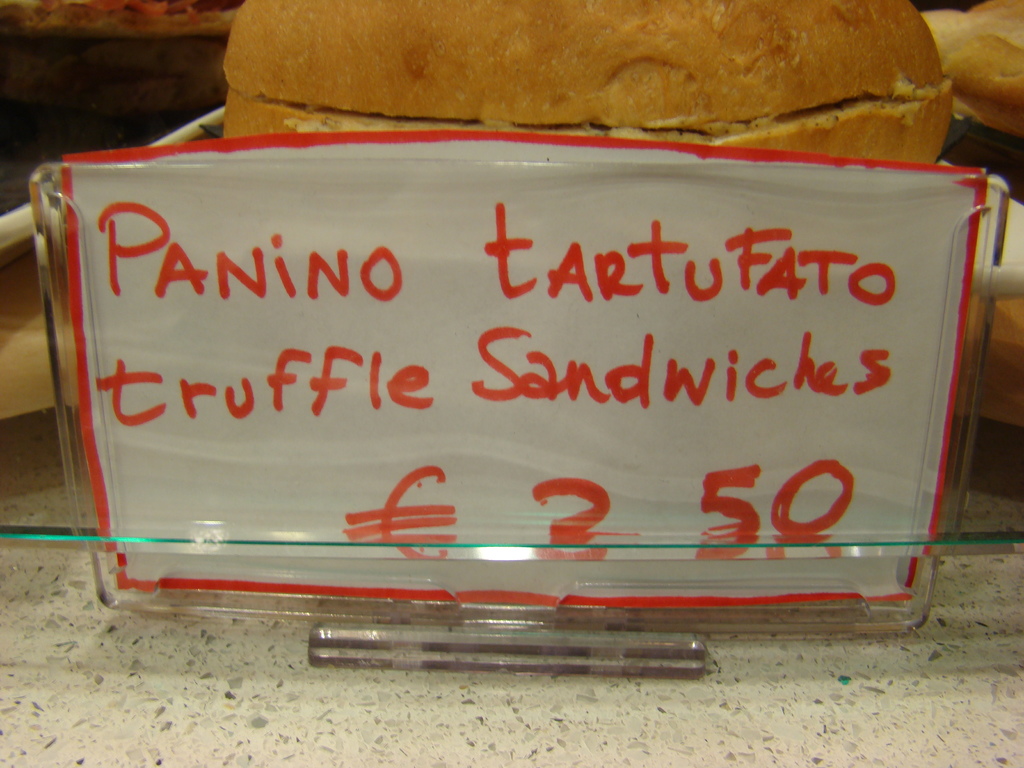 PANiNO tARTUFATO
truffle Sandwiches
€ 2 50